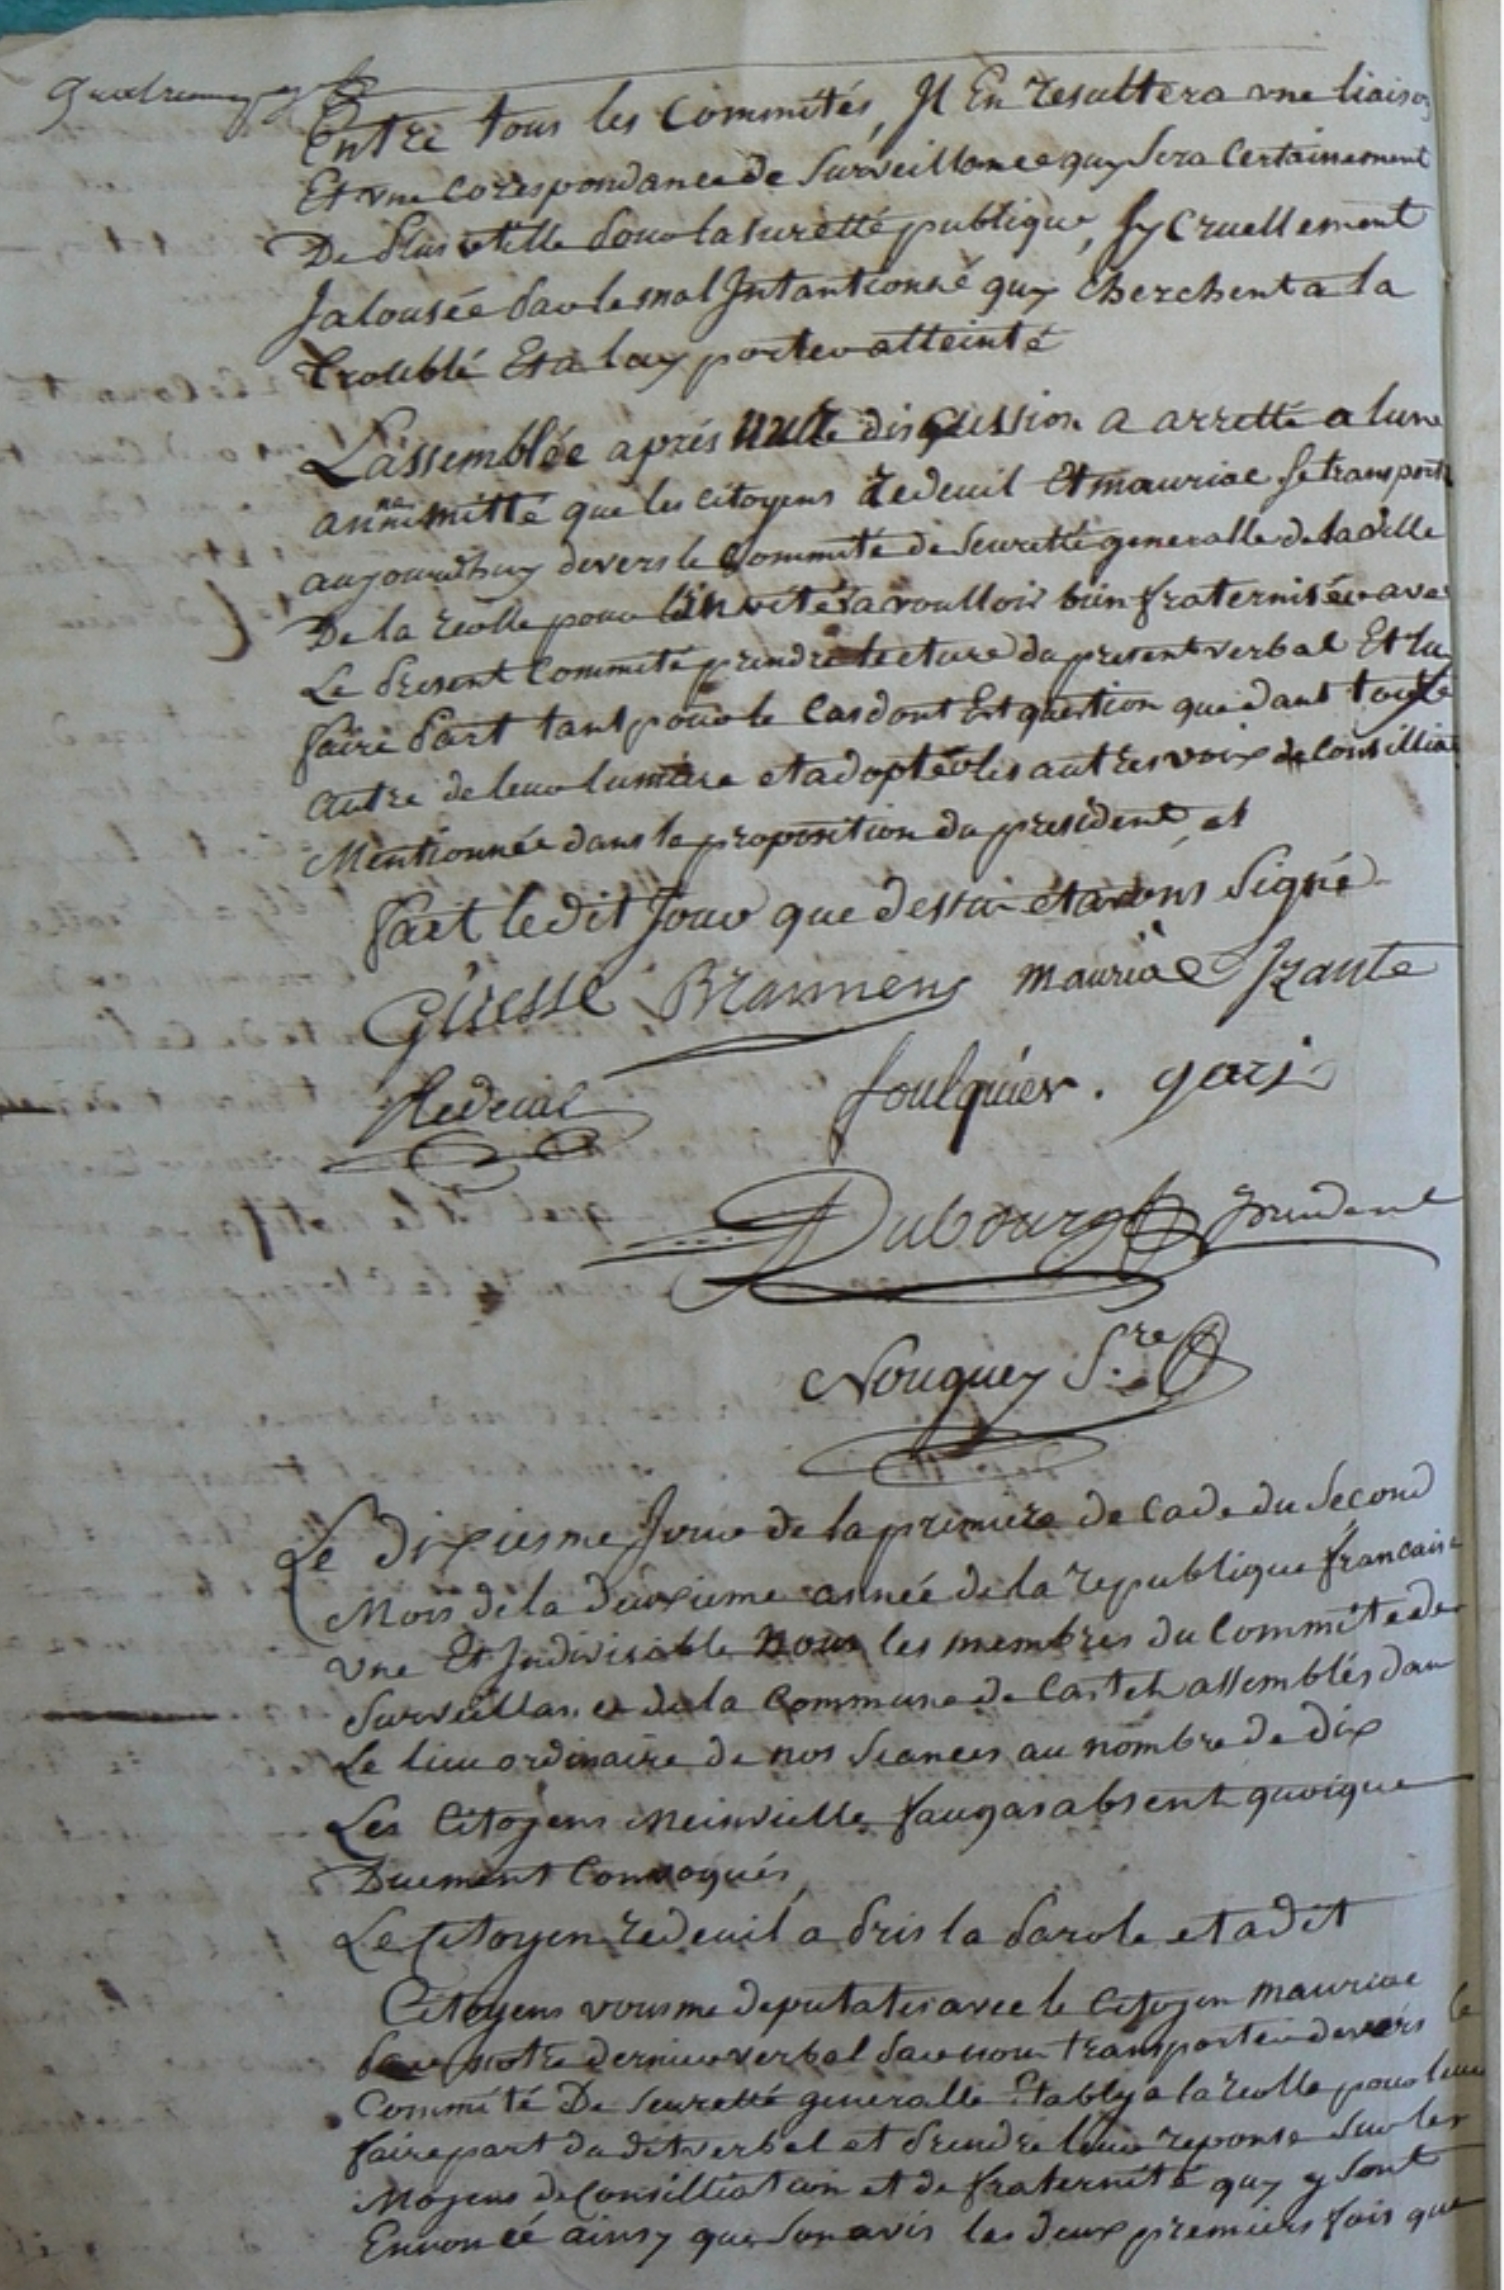 Entre tous les Commités, Il En resultera une liaison
Et une Corespondance de Surveillance quy Sera Certainement
De plus utille pour la suretté publique, Sy Cruellement
Jalousée par le mal Intantionné quy cherchent a la
troublé Et a luy porter atteinte
L'assemblée aprés mure discussion a arretté a lune
animitté que les citoyens redeuil Et mauriac se transporte
aujourdhuy devers le Commité de Seuretté generalle de la ville
De la reolle pour linvité a voulloir bien fraterniser avec
Le present Commité prendre lecture du present verbal Et luy
faire part tant pour le cas dont Est question que dant toute
autre de leur lumiere et adopter les autres voix de Consilliation
Mentionnée dans la proposition du president, et
fait le dit Jour que dessus et avons Signé
Giresse Brannens mauriac Izante
Redeuil foulquier . garj
Dubourg president
Nouguey S.re
Le dixiesme Jour de la premiere decade du Second
Mois de la deuxieme année de la republique francaise
une Et Indivisible Nous les membres du Commité de
Surveillance de la Commune de Casteh assemblés dans
Le lieu ordinaire de nos Seances au nombre de dix
Les Citoyens Meinvielle, faugas absent quoique
Duement Convoqués,
Le Citoyen redeuil a pris la parole et a dit
Citoyens vous me deputates avec le Citoyen mauriac
par notre dernier verbal pour nous transporter devers le
Commité De Seuretté generalle Etably a la reolle pour leur
faire part du dit verbal et prendre leur reponse Sur les
Moyens de Consilliation et de fraternité quy y Sont
Ennoncé ainsy que Son avis les deux premiers fois que